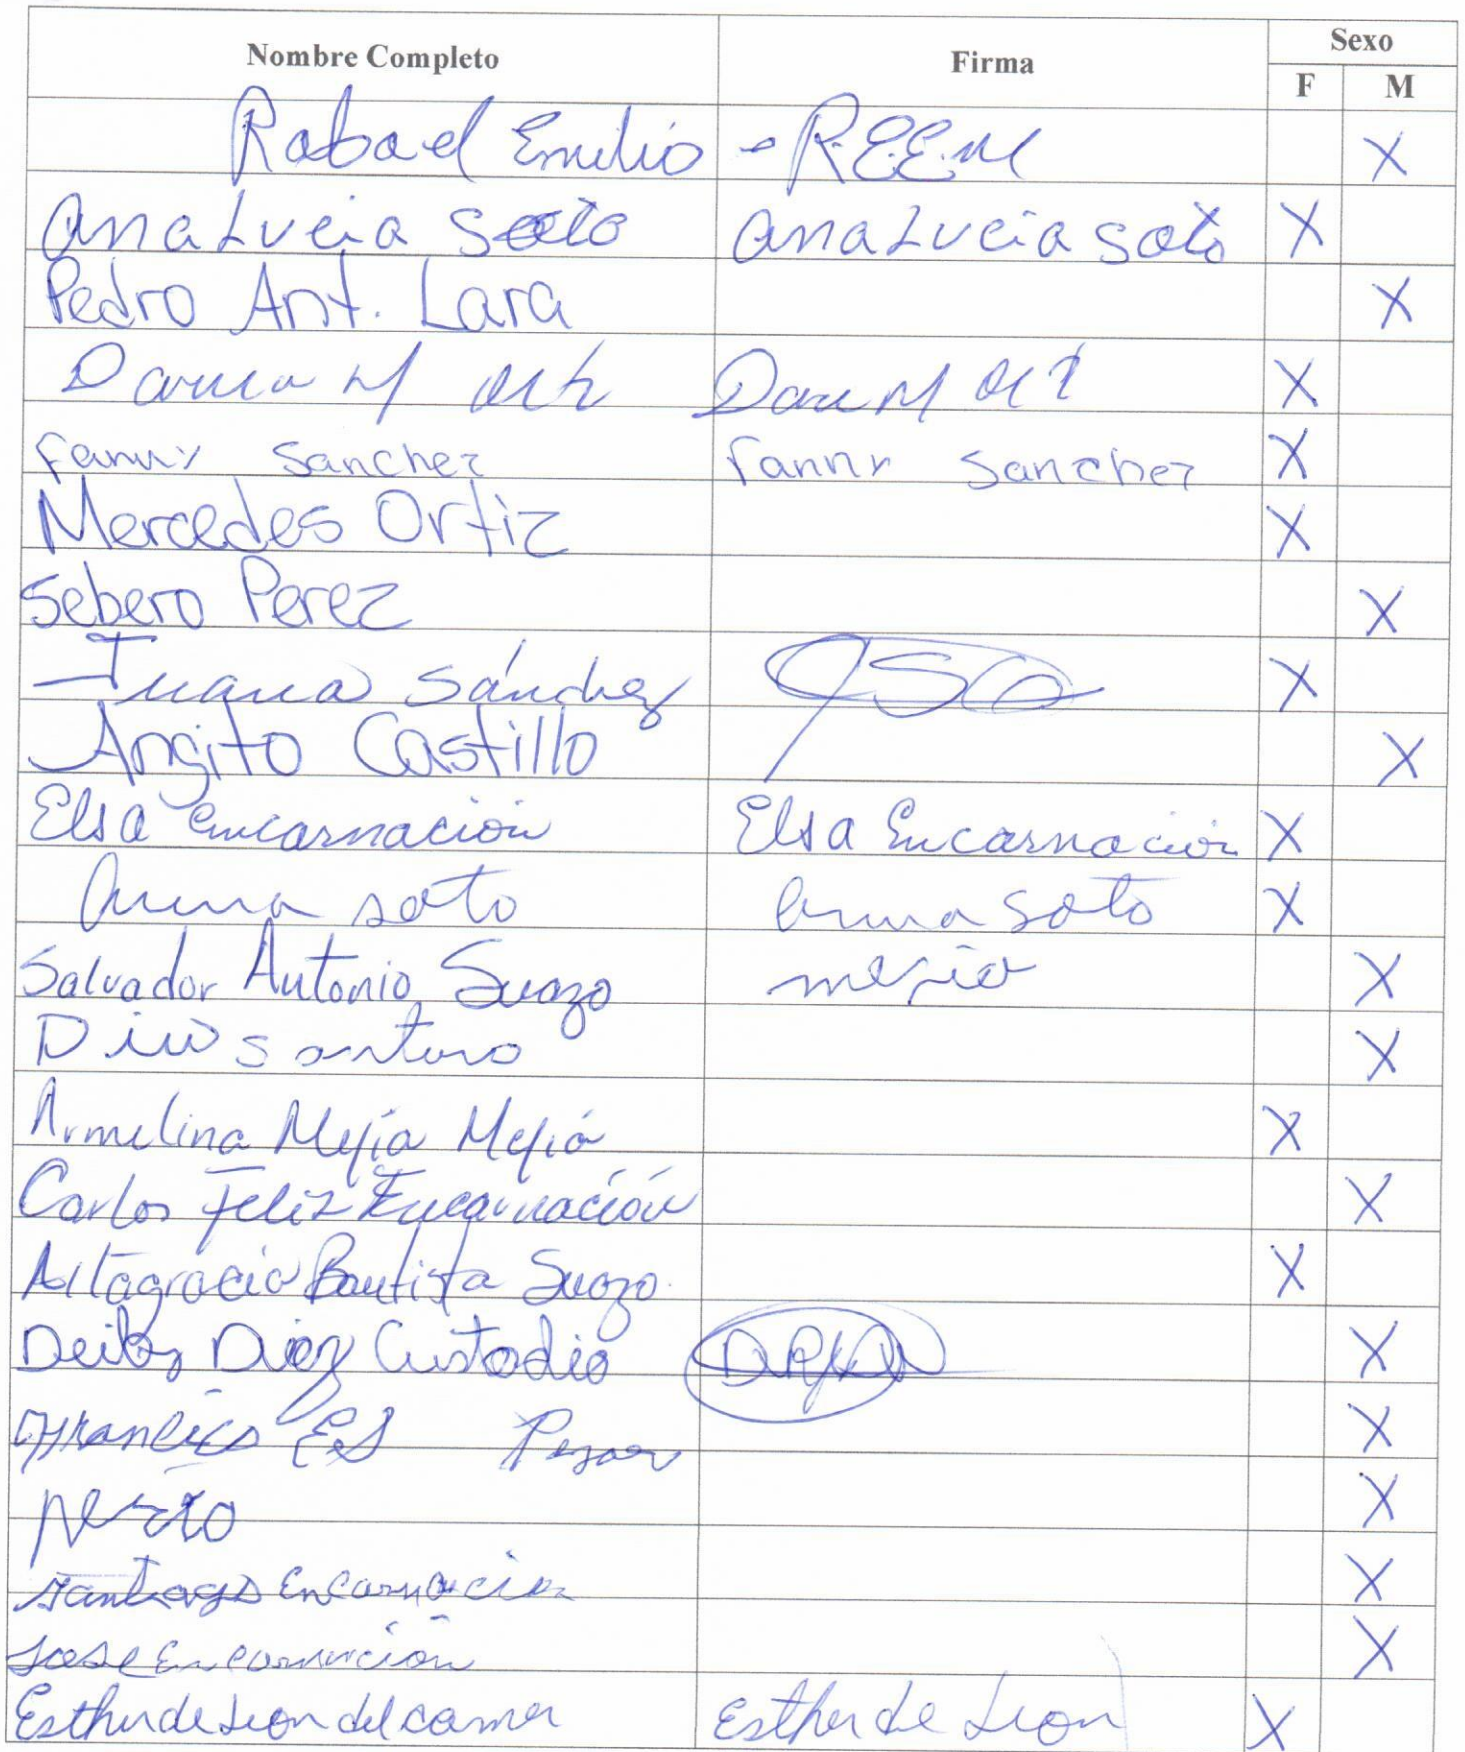 Nombre Completo Firma Sexo
F M
Rabael Emilio - R.E.E.M X
Ana Lucia Soto Ana Lucia Soto X
Pedro Ant. Lara X
M X
Fanny Sanchez Fanny Sanchez X
Mercedes Ortiz X
Sebero Perez X
Juana Sánchez JSO X
Angito Castillo X
Elsa Encarnación Elsa Encarnación X
soto soto X
Salvador Antonio Suazo X
X
Armelina Mejía Mejía X
Carlos Feliz Encarnación X
Altagracia Bautista Suazo X
Deiby Diaz Custodio X
X
X
Santiago Encarnacion X
Jose Encarnación X
Esther de Leon del carmen Esther de Leon X